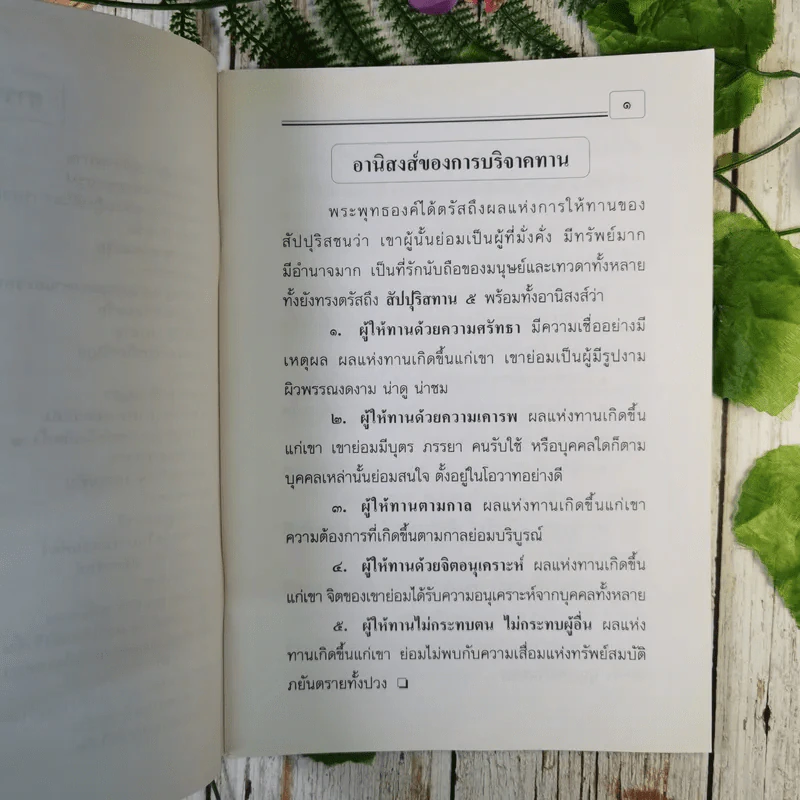 ๑
อานิสงส์ของการบริจาคทาน
พระพุทธองค์ได้ตรัสถึงผลแห่งการให้ทานของ
สัปปุริสชนว่า เขาผู้นั้นย่อมเป็นผู้ที่มั่งคั่ง มีทรัพย์มาก
มีอำนาจมาก เป็นที่รักนับถือของมนุษย์และเทวดาทั้งหลาย
ทั้งยังทรงตรัสถึง สัปปุริสทาน ๕ พร้อมทั้งอานิสงส์ว่า
๑. ผู้ให้ทานด้วยความศรัทธา มีความเชื่ออย่างมี
เหตุผล ผลแห่งทานเกิดขึ้นแก่เขา เขาย่อมเป็นผู้มีรูปงาม
ผิวพรรณงดงาม น่าดู น่าชม
๒. ผู้ให้ทานด้วยความเคารพ ผลแห่งทานเกิดขึ้น
แก่เขา เขาย่อมมีบุตร ภรรยา คนรับใช้ หรือบุคคลใดก็ตาม
บุคคลเหล่านั้นย่อมสนใจ ตั้งอยู่ในโอวาทอย่างดี
๓. ผู้ให้ทานตามกาล ผลแห่งทานเกิดขึ้นแก่เขา
ความต้องการที่เกิดขึ้นตามกาลย่อมบริบูรณ์
๔. ผู้ให้ทานด้วยจิตอนุเคราะห์ ผลแห่งทานเกิดขึ้น
แก่เขา จิตของเขาย่อมได้รับความอนุเคราะห์จากบุคคลทั้งหลาย
๕. ผู้ให้ทานไม่กระทบตน ไม่กระทบผู้อื่น ผลแห่ง
ทานเกิดขึ้นแก่เขา ย่อมไม่พบกับความเสื่อมแห่งทรัพย์สมบัติ
ภยันตรายทั้งปวง ❑